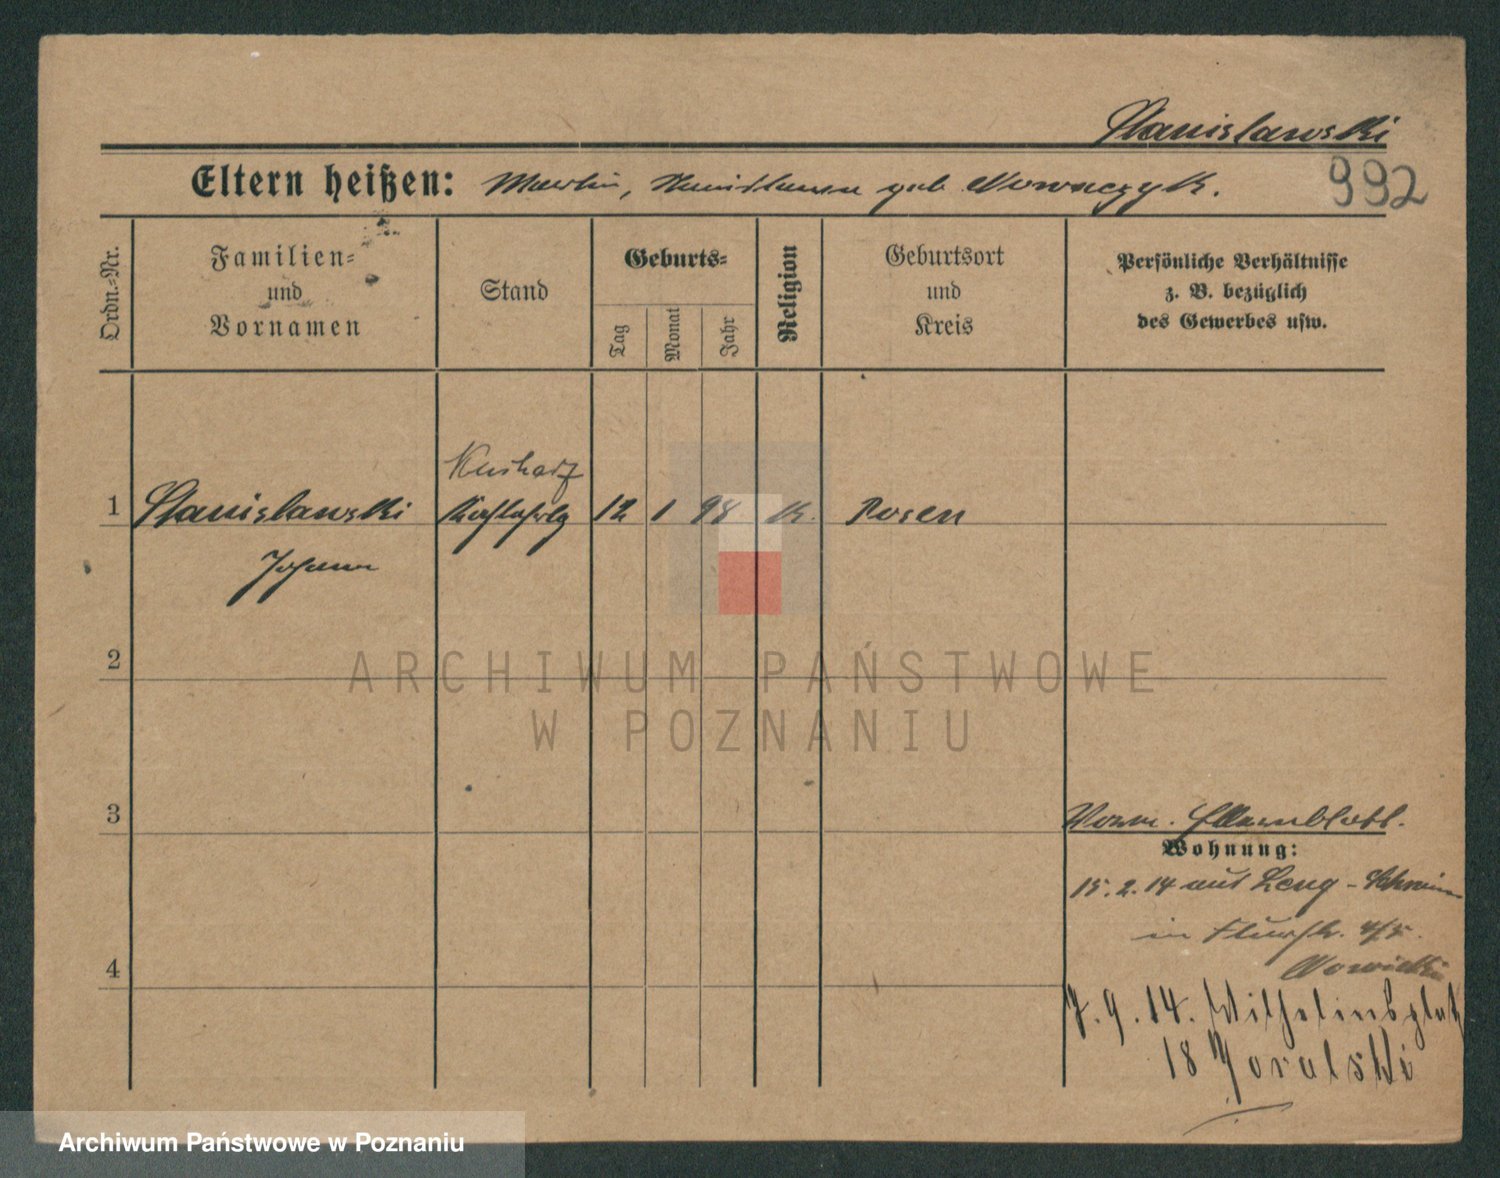 Stanislawski
Eltern heißen: Martin, Stanislawa geb Nowaczyk.
992
Ordn.-Nr.
Familien-
und
Vornamen
Stand
Geburts-
Tag
Monat
Jahr
Religion
Geburtsort
und
Kreis
Persönliche Verhältnisse
z. B. bezüglich
des Gewerbes usw.
1 Stanislawski 12 1 98 K. Posen
Johann
2
ARCHIWUM PAŃSTWOWE
W POZNANIU
3
Wohnung:
15.2.14 aus
in 4/5.
4
7.9.14. Wilhelmsplatz
18
Archiwum Państwowe w Poznaniu